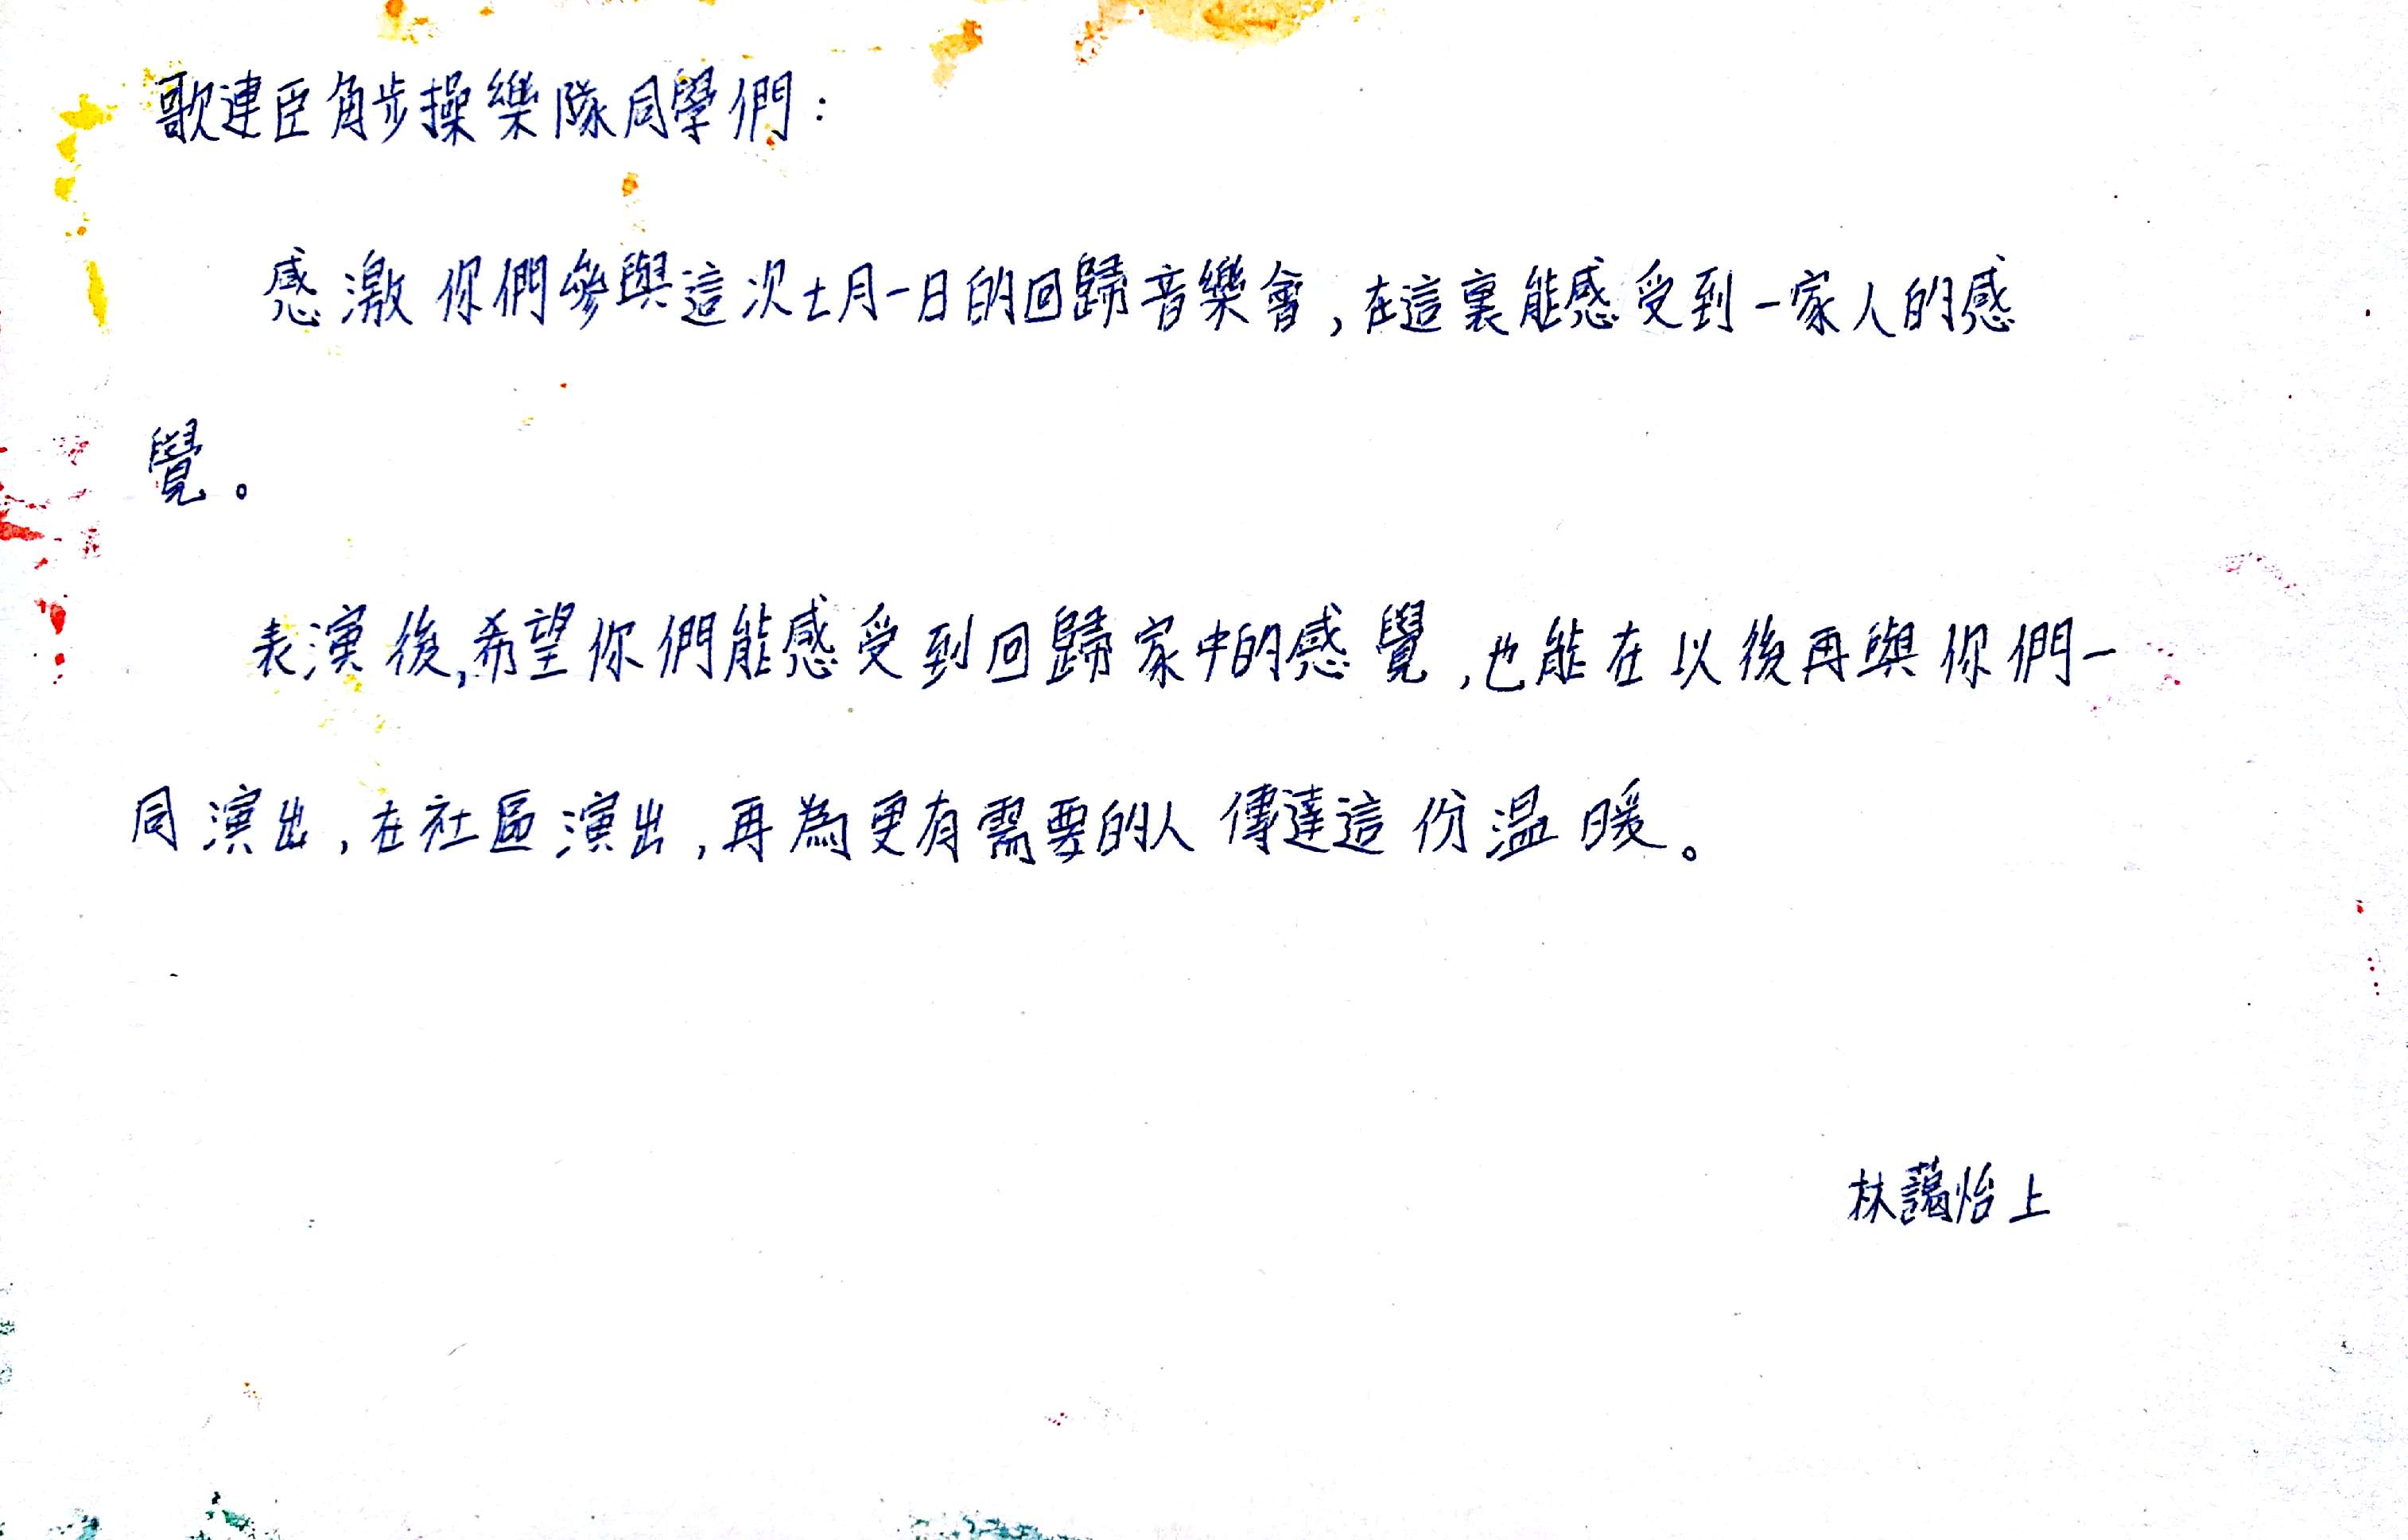 歌連臣角步操樂隊同學們：
感激你們參與這次七月一日的回歸音樂會，在這裏能感受到一家人的感
覺。
表演後，希望你們能感受到回歸家中的感覺，也能在以後再與你們一
同演出，在社區演出，再為更有需要的人傳達這份溫暖。
林藹怡上